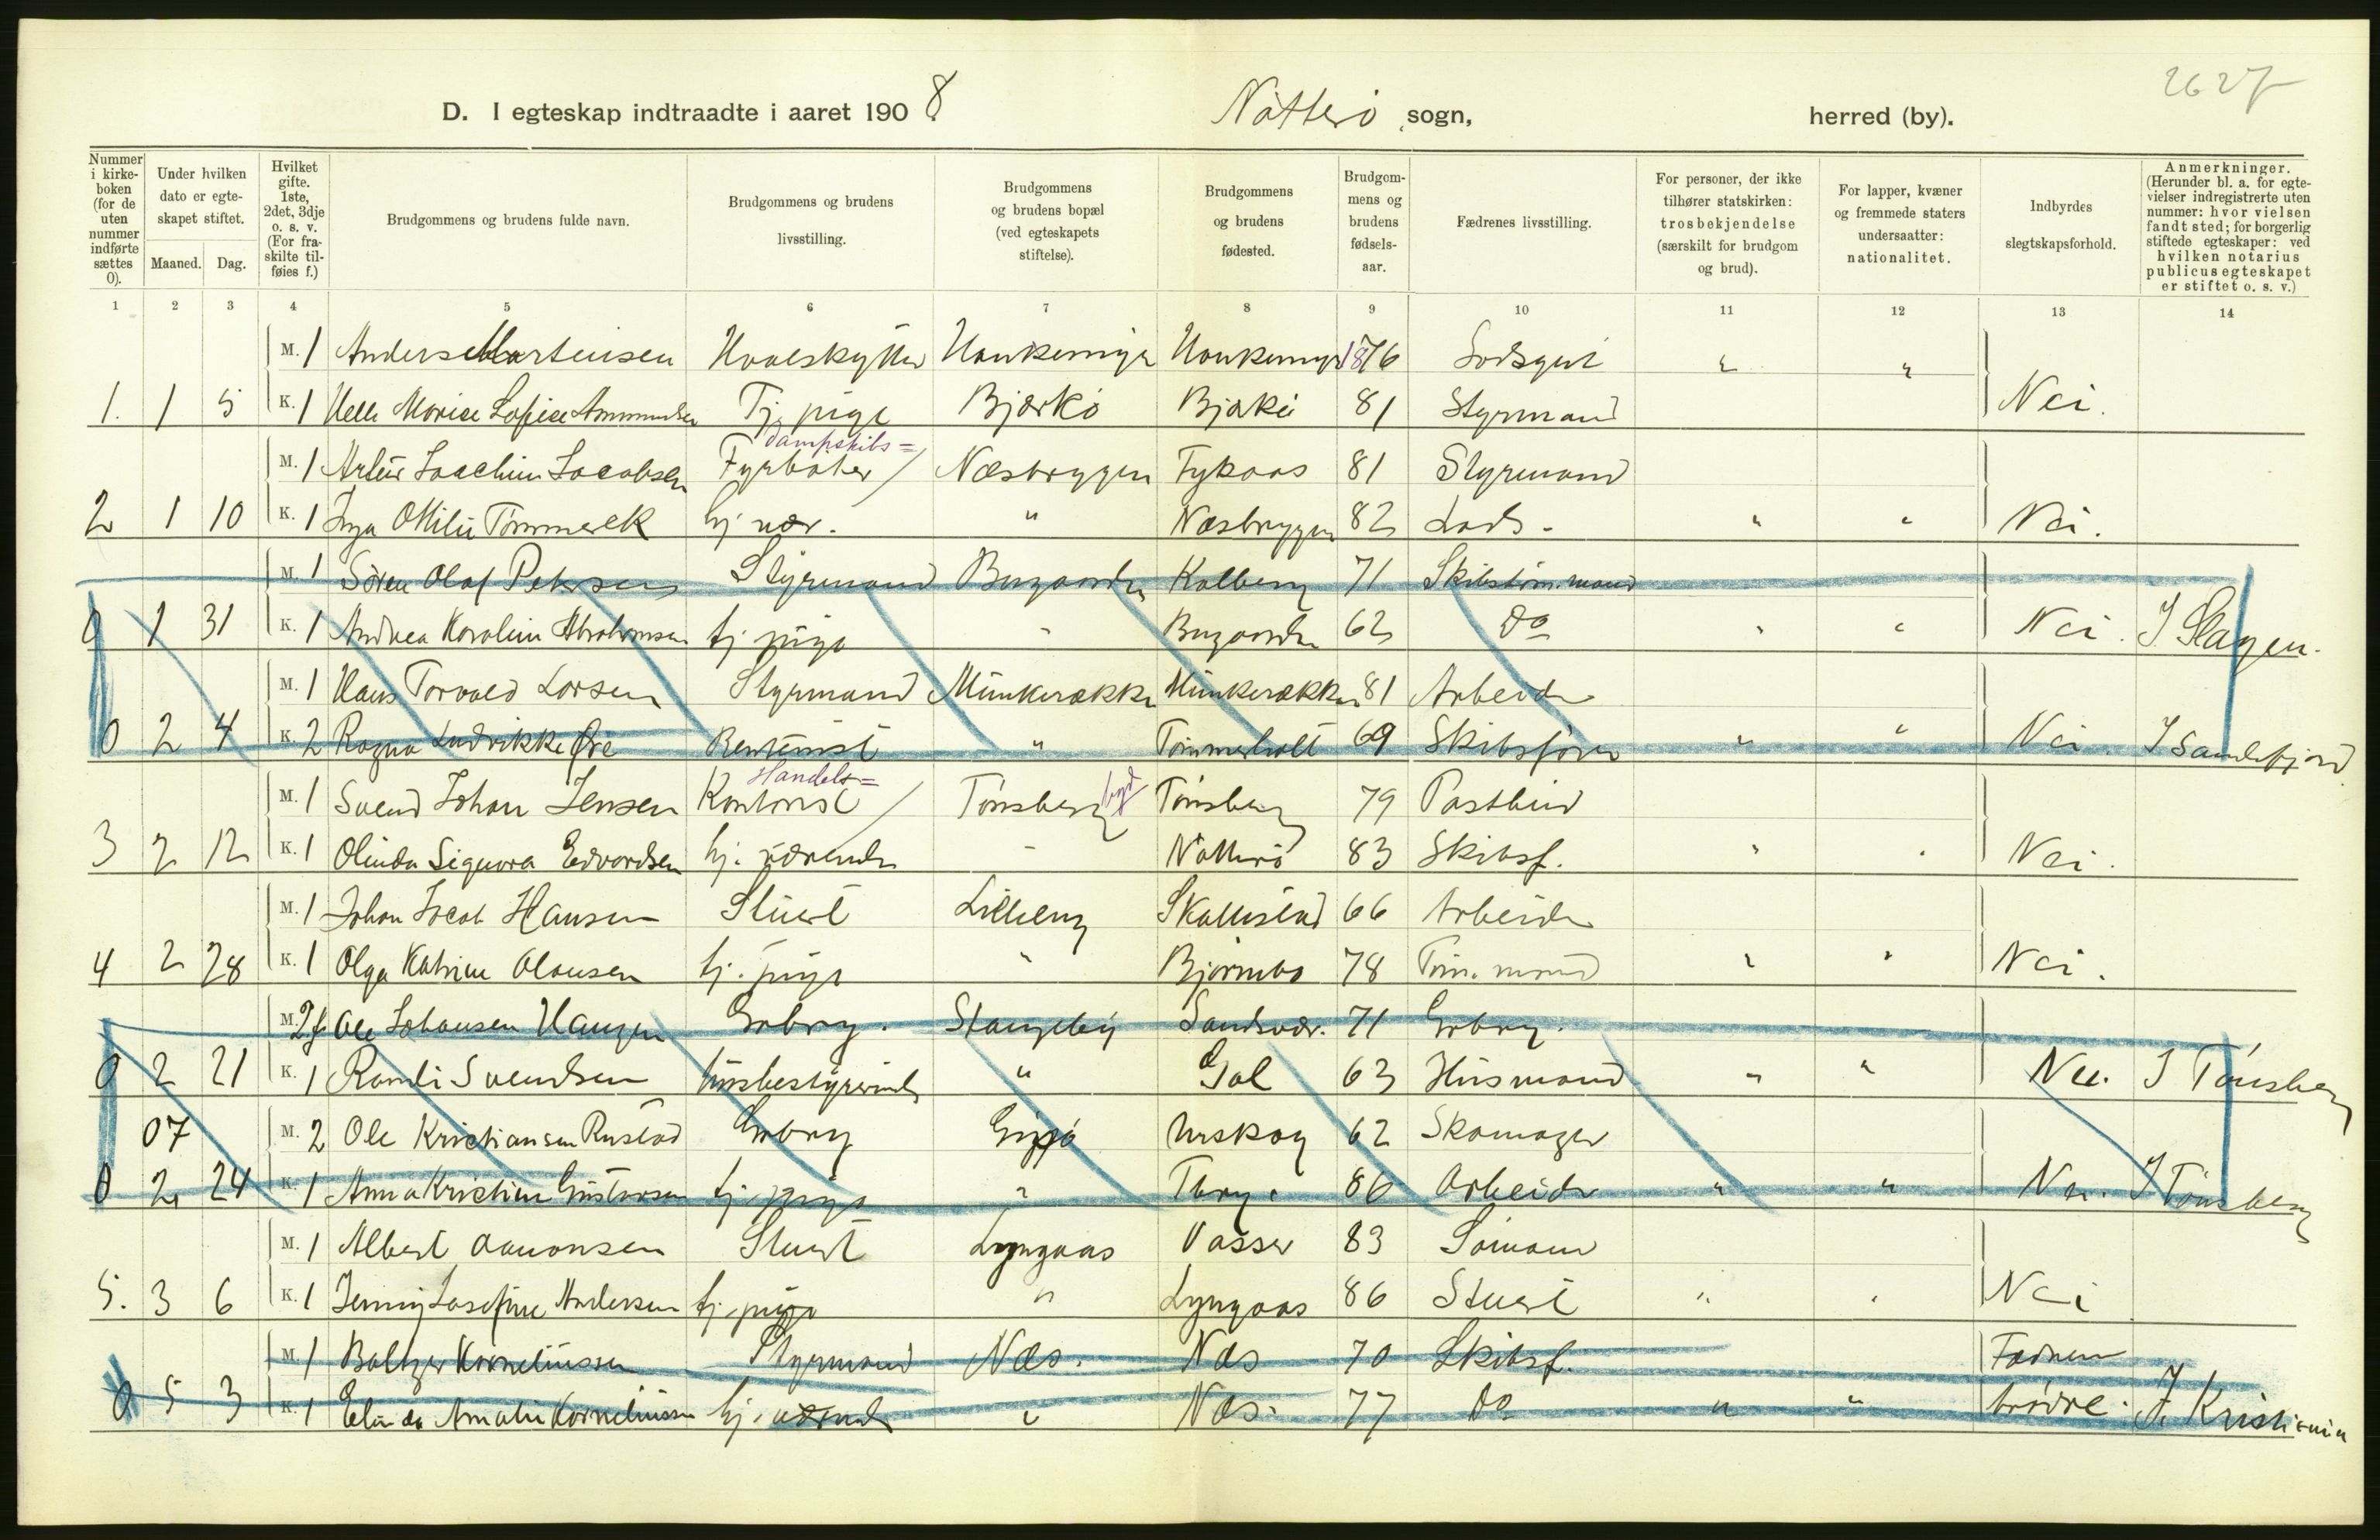 2627
D. I egteskap indtraadte i aaret 1908. Nötterö sogn, herred (by).
Nummer i kirkeboken (for de uten nummer indførte sættes 0).
Under hvilken dato er egteskapet stiftet.
Maaned. Dag.
Hvilket gifte. 1ste, 2det, 3dje o. s. v. (For fraskilte tilføies f.)
Brudgommens og brudens fulde navn.
Brudgommens og brudens livsstilling.
Brudgommens og brudens bopæl (ved egteskapets stiftelse).
Brudgommens og brudens fødested.
Brudgommens og brudens fødselsaar.
Fædrenes livsstilling.
For personer, der ikke tilhører statskirken: trosbekjendelse (særskilt for brudgom og brud).
For lapper, kvæner og fremmede staters undersaatter: nationalitet.
Indbyrdes slegtskapsforhold.
Anmerkninger. (Herunder bl. a. for egtevielser indregistrerte uten nummer: hvor vielsen fandt sted; for borgerlig stiftede egteskaper: ved hvilken notarius publicus egteskapet er stiftet o. s. v.)
1 2 3 4 5 6 7 8 9 10 11 12 13 14
M. 1 Anders Martinsen Hvalskytter 1876 " "
1. 1 5 K. 1 Helle Marie Sofie Ammundsen Tj. pige Bjerkö Bjerkö 81 Styrmand Nei.
Dampskibs=
M. 1 Artur Joachim Jacobsen Fyrböter / Næsbryggen 81 Styrmand
2 1 10 K. 1 Inga Ottilie Tömmerek hj. vær. " Næsbryggen 82 Lods. " " Nei.
M. 1 Sören Olaf Petersen Styrmand Kalberg 71 Skibstöm.mand
0 1 31 K. 1 Andrea Karoline Abrahamsen tj. pige " 62 Do " " Nei. I Slagen.
M. 1 Hans Torvald Larsen Styrmand Munkerækken Munkerækken 81 Arbeider
0 2 4 K. 2 Ragna Ludrikke Öre Rentenist " Tömmerholt 69 Skibsförer " " Nei. I Sandefjord
Handels=
M. 1 Svend Johan Jensen Kontorist / Tönsberg by Tönsberg 79 Postbud
3 2 12 K. 1 Olinda Signora Edvardsen hj. værende " Nötterö 83 Skibsf. " " Nei.
M. 1 Johan Jacob Hansen Stuert Lilleeng Skallestad 66 Arbeider
4 2 28 K. 1 Olga Katrine Olausen tj. pige " Björnebo 78 Töm. mand " " Nei.
M. 2f Ole Johansen Haugen Grbrg. Stangeby Sandsvær. 71 Grbrg.
0 2 21 K. 1 Randi Svendsen husbestyrerinde " Gol 63 Husmand " " Nei. I Tönsberg
07 M. 2 Ole Kristiansen Rustad Grbrg Gipö Urskog 62 Skomager
0 2 24 K. 1 Anna Kristine Gustavsen tj. pige " Tbrg. 86 Arbeider " " Nei. I Tönsberg
M. 1 Albert Aanonsen Stuert Lyngaas Vasser 83 Sömand
5. 3 6 K. 1 Jenny Josefine Andersen tj. pige " Lyngaas 86 Stuert " " Nei
M. 1 Baltzer Korneliussen Styrmand Næs. Næs 70 Skibsf. Fædrene
0 5 3 K. 1 Elinda Amalie Korneliussen hj. værende " Næs. 77 Do " " brödre. I Kristiania